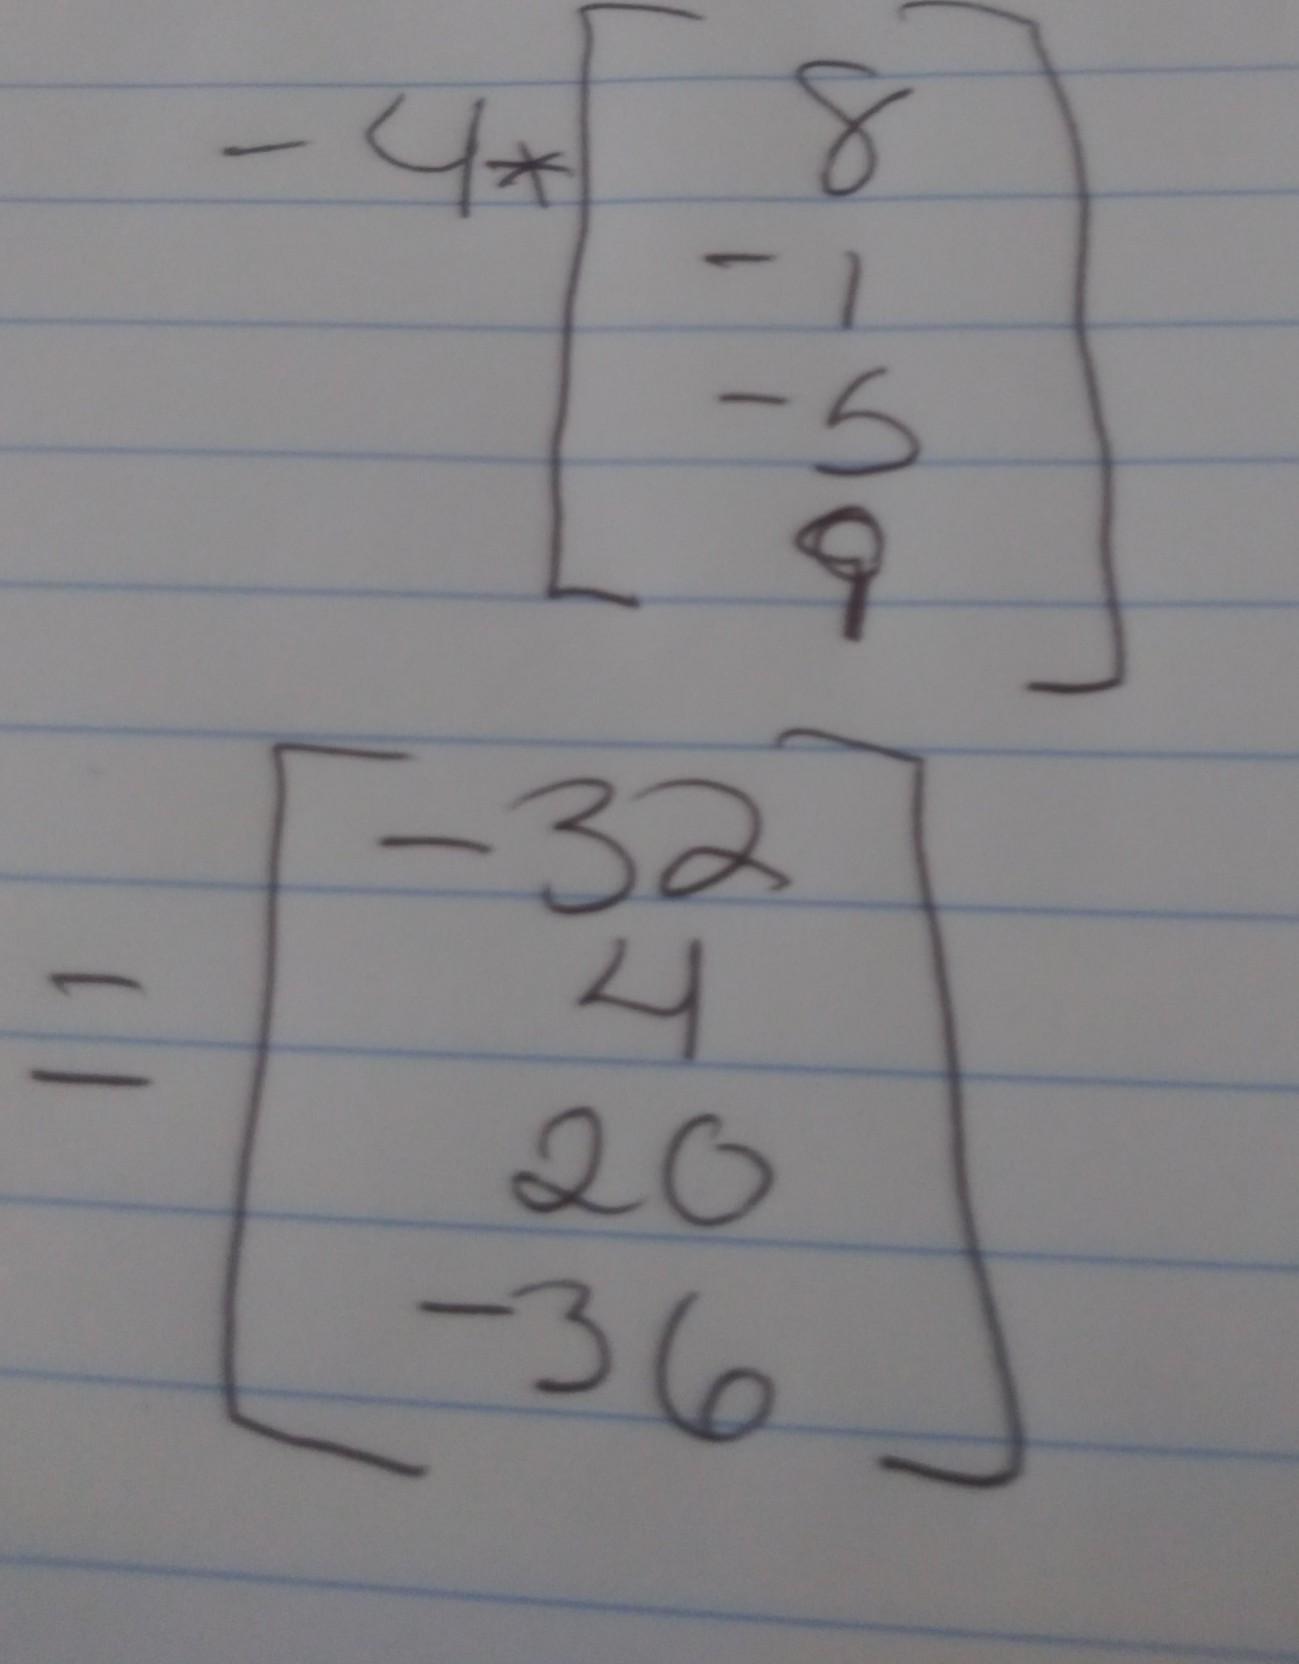 -4* [ 8
-1
-5
9 ]
= [ -32
4
20
-36 ]